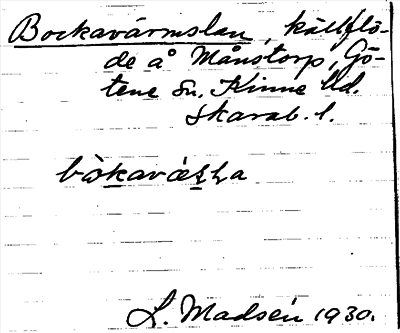 Bockavärmslan, källflö-
de å Månstorp, Gö-
tene sn. Kinne hd.
Skarab. l.
bòkavæʂʟa
L. Madsén 1930.